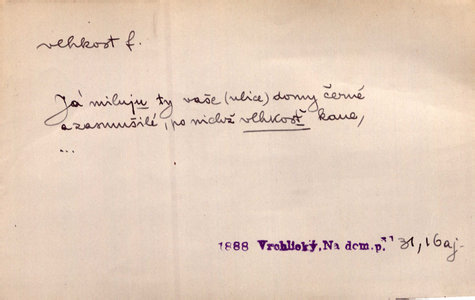 vlhkost f.
Já miluju ty vaše (ulice) domy černé
a zasmušilé, po nichž vlhkosť kane,
...
1888 Vrchlický, Na dom. p. 31, 16aj.